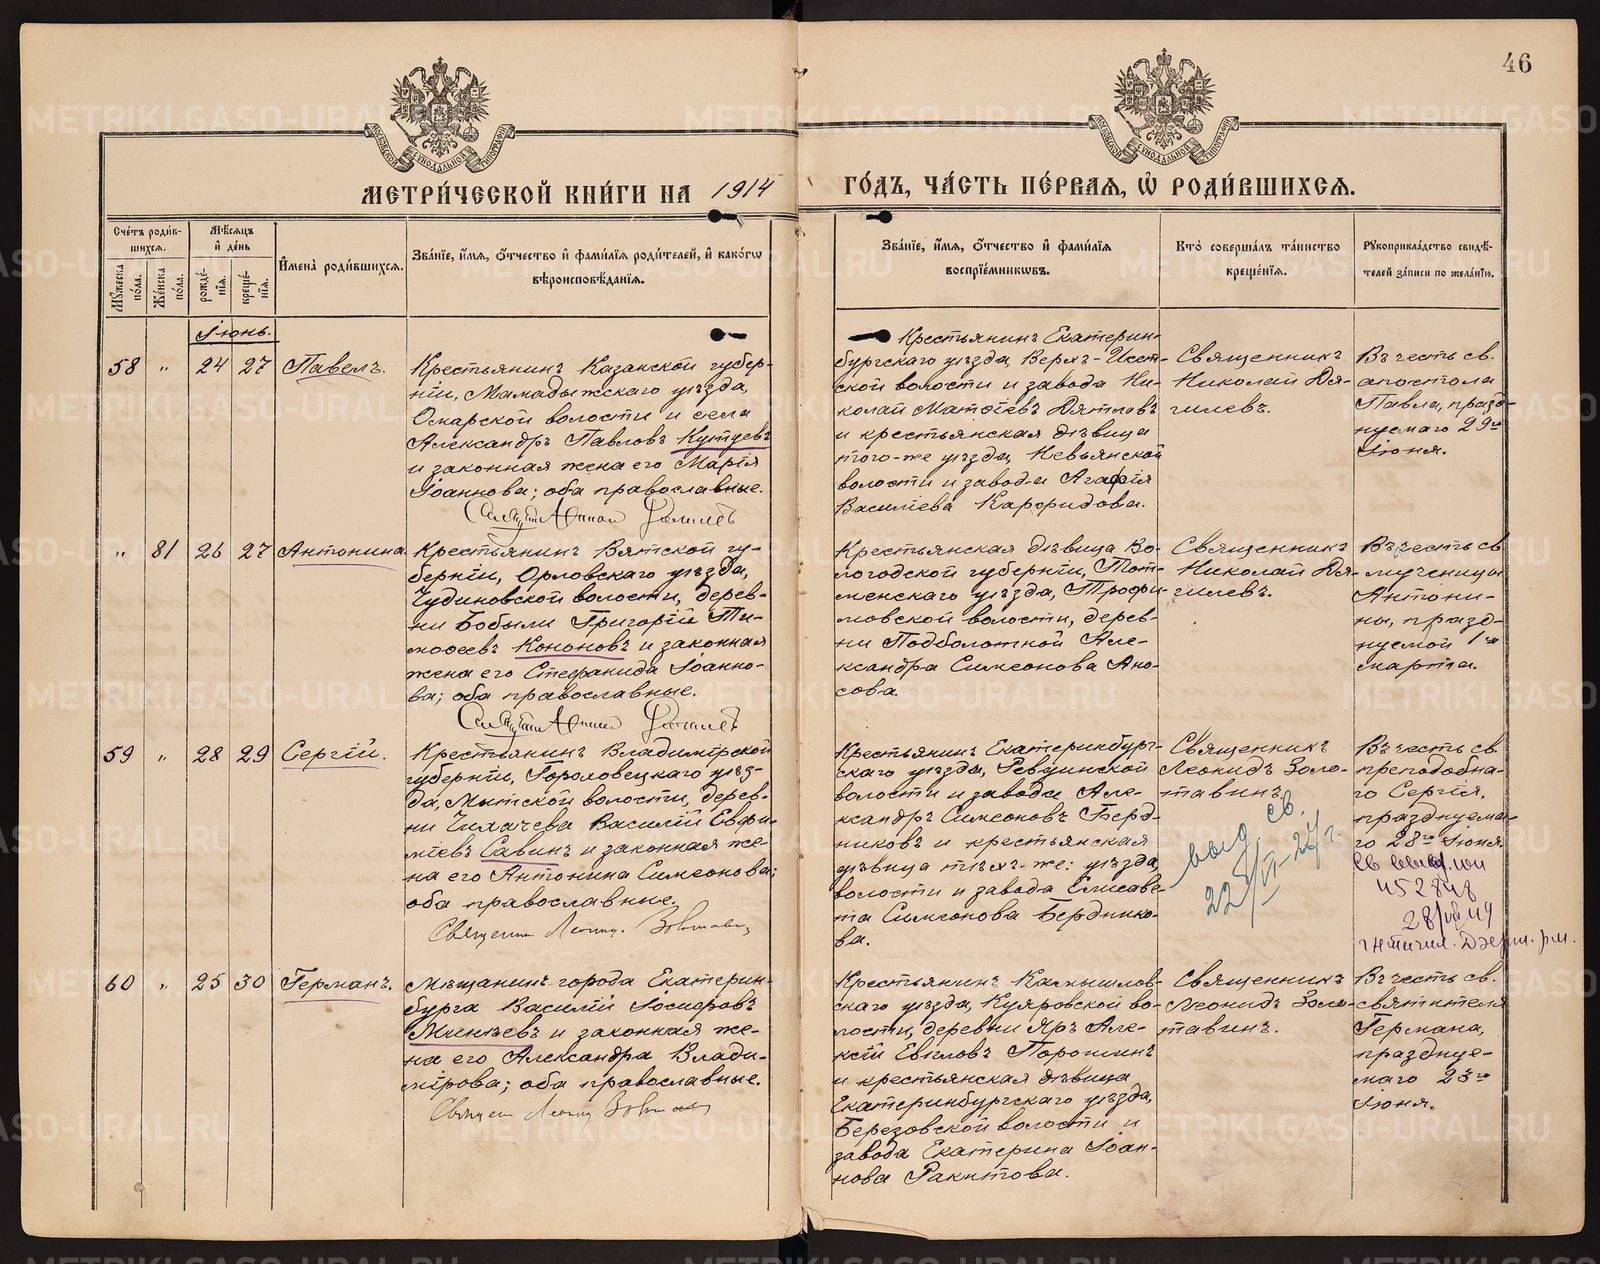 46
МЕТРИ́ЧЕСКОЙ КНИ́ГИ НА 1914 ГО́ДЪ, ЧА́СТЬ ПЕ́РВАЯ, Ѡ҆ РОДИ́ВШИХСЯ.
Сче́тъ роди́в-
шихся.
Му́жеска по́ла.
Же́нска по́ла.
Мѣ́сяцъ и҆ де́нь
рожде́-
нїя.
креще́-
нїя.
И҆мена̀ роди́вшихся.
Зва́нїе, и҆́мя, ѻ҆́тчество и҆ фами́лїя роди́телей, и҆ како́гѡ
вѣроисповѣ́данїя.
Зва́нїе, и҆́мя, ѻ҆́тчество и҆ фами́лїя
воспрїе́мникѡвъ.
Кто̀ соверша́лъ та́инство
креще́нїя.
Рꙋкоприкла́дство свидѣ́-
телей за́писи по жела́нїю.
Іюнь.
58 „ 24 27 Павелъ.
Крестьянинъ Казанской губер-
ніи, Мамадыжскаго уѣзда,
Омарской волости и села
Александръ Павловъ Кутуевъ
и законная жена его Марія
Іоаннова; оба православные.
Крестьянинъ Екатерин-
бургскаго уѣзда, Верхъ-Исет-
ской волости и завода Ни-
колай Матѳіевъ Дятловъ
и крестьянская дѣвица
того-же уѣзда, Невьянской
волости и завода Агафія
Василіева Карфидова.
Священникъ
Николай Дя-
гилевъ.
Въ честь св.
апостола
Павла, празд-
нуемаго 29го
Іюня.
„ 81 26 27 Антонина
Крестьянинъ Вятской гу-
берніи, Орловскаго уѣзда,
Чудиновской волости, дерев-
ни Бобыли Григорій Ти-
моѳеевъ Кононовъ и законная
жена его Стефанида Іоанно-
ва; оба православные.
Крестьянская дѣвица Во-
логодской губерніи, Тот-
менскаго уѣзда, Трофи-
мовской волости, дерев-
ни Подболотной Але-
ксандра Симеонова Ано-
сова.
Священникъ
Николай Дя-
гилевъ.
Въ честь св.
мученицы
Антони-
ны, празд-
нуемой 1го
марта.
59 „ 28 29 Сергій.
Крестьянинъ Владимірской
губерніи, Гороховецкаго уѣз-
да, Мытской волости, дерев-
ни Чихачева Василій Евфи-
міевъ Савинъ и законная же-
на его Антонина Симеонова;
оба православные.
Священник Леонид Золотавин
Крестьянинъ Екатеринбург-
скаго уѣзда, Ревдинской
волости и завода Але-
ксандръ Симеоновъ Берд-
никовъ и крестьянская
дѣвица тѣхъ-же: уѣзда,
волости и завода Елисаве-
та Симеонова Берднико-
ва.
Священникъ
Леонидъ Золо-
тавинъ.
выд. св.
Въ честь св.
преподобна-
го Сергія,
празднуема-
го 28го Іюня.
60 „ 25 30 Германъ.
Мѣщанинъ города Екатерин-
бурга Василій Іосифовъ
Минѣевъ и законная же-
на его Александра Влади-
мірова; оба православные.
Священ Леонид Золотавин
Крестьянинъ Камышлов-
скаго уѣзда, Куяровской во-
лости, деревни Яръ Але-
ксій Евіловъ Порошинъ
и крестьянская дѣвица
Екатеринбургскаго уѣзда,
Березовской волости и
завода Екатерина Іоан-
нова Ракитова.
Священникъ
Леонидъ Золо-
тавинъ.
Въ честь св.
святителя
Германа,
празднуе-
маго 23го
Іюня.